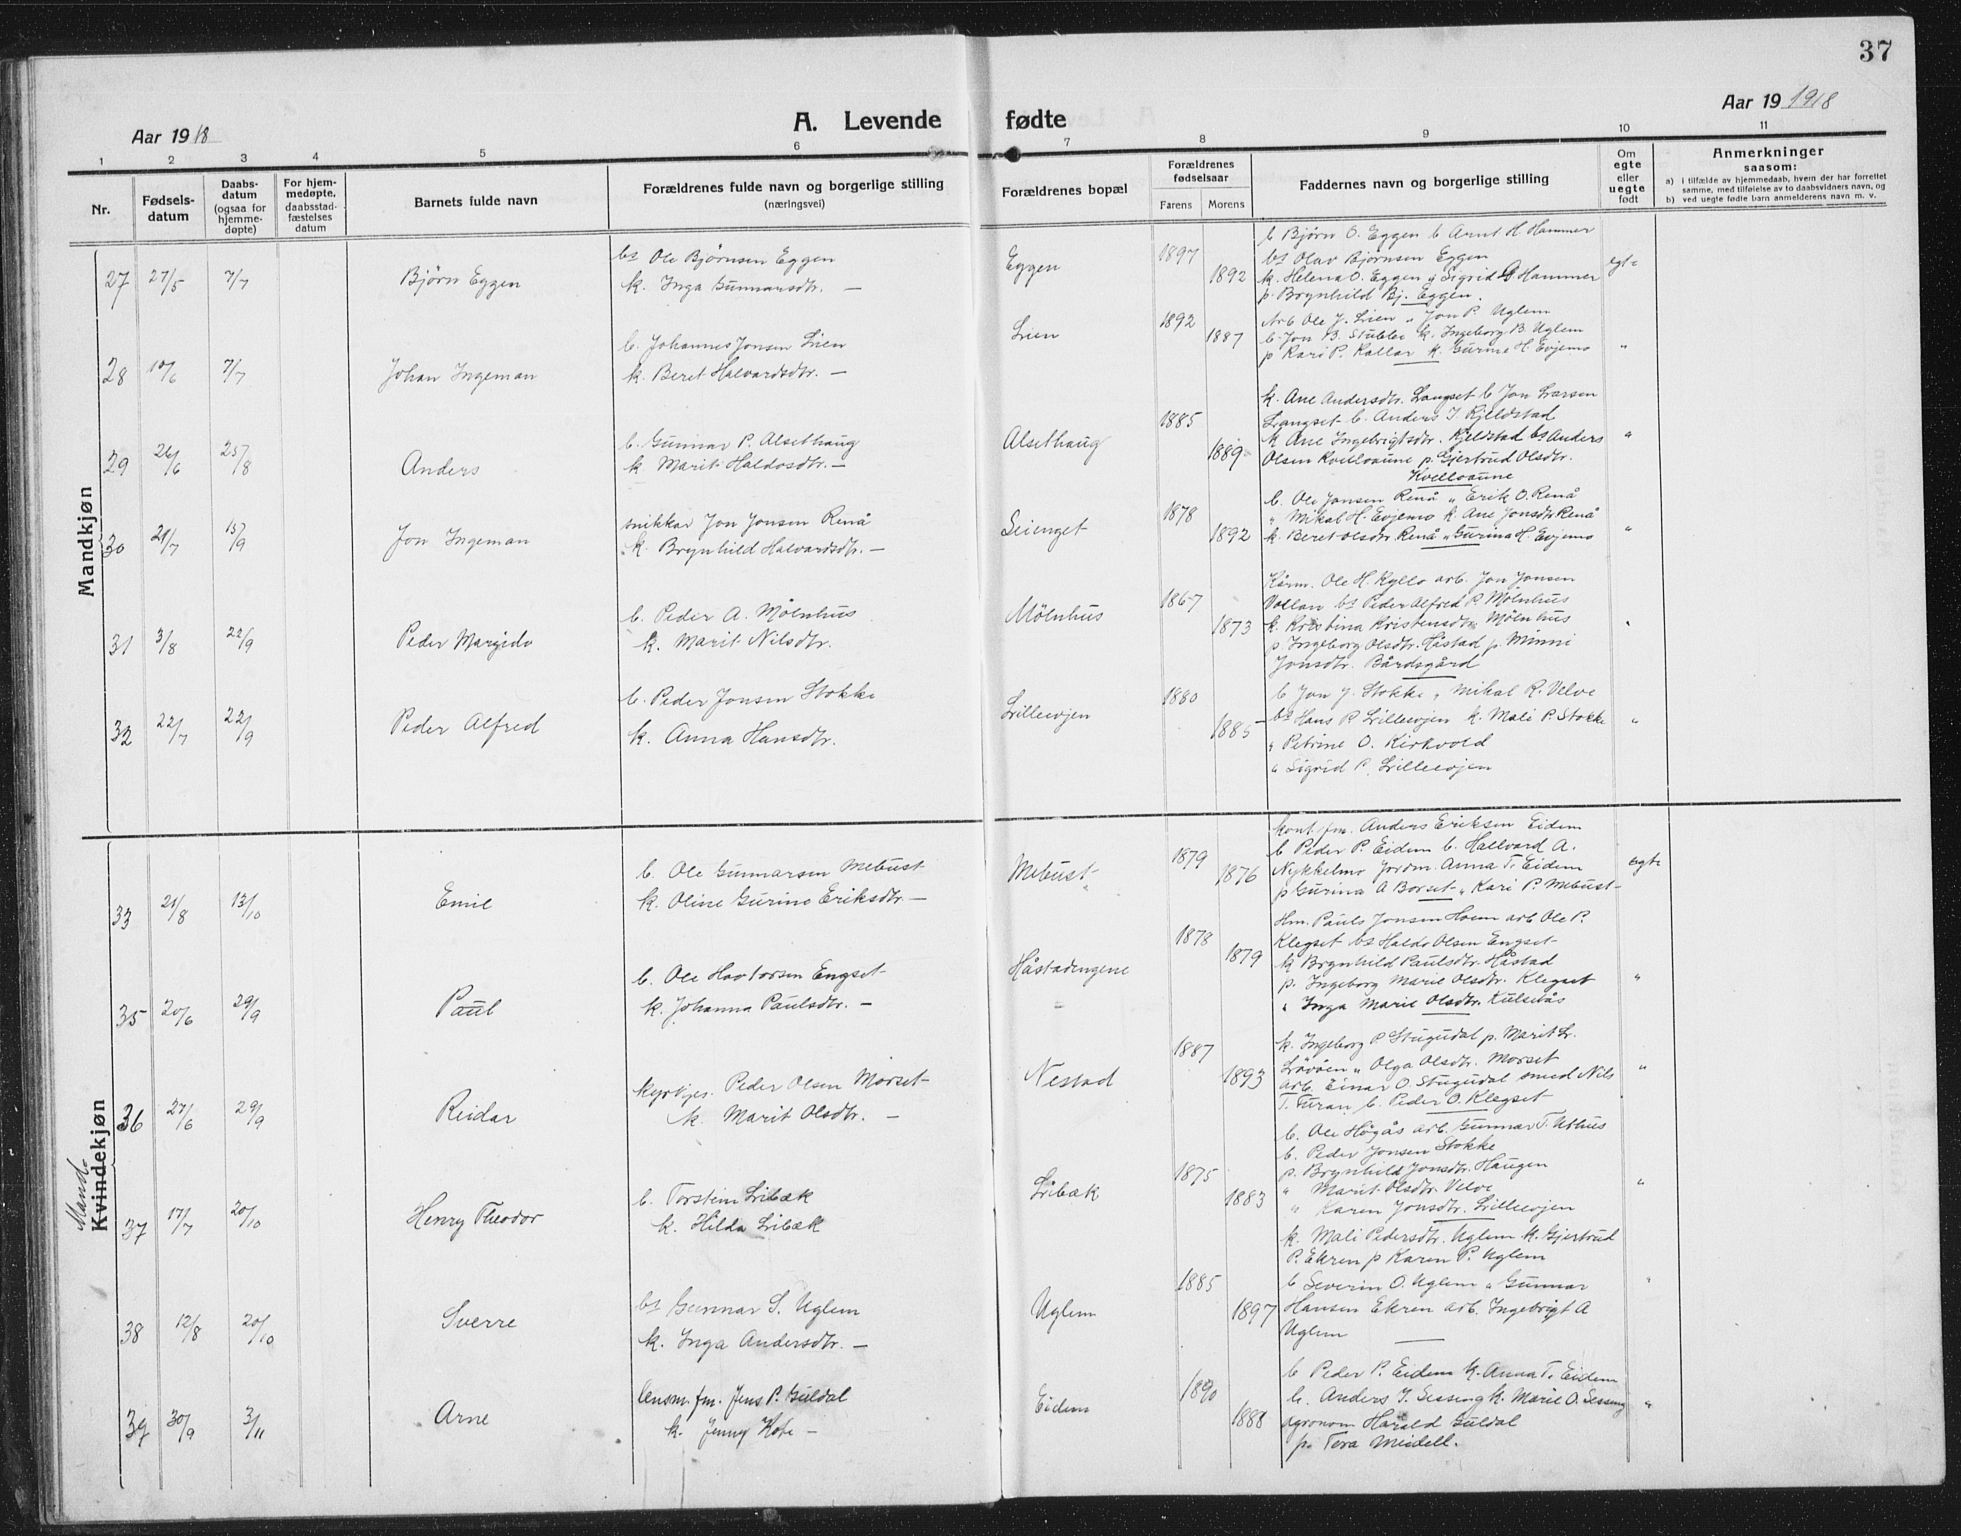 37
Aar 1918
A. Levende fødte
Aar 19 1918
1 2 3 4 5 6 7 8 9 10 11
Nr.
Fødsels-
datum
Daabs-
datum
(ogsaa for
hjemme-
døpte)
For hjem-
medøpte,
daabsstad-
fæstelses
datum
Barnets fulde navn
Forældrenes fulde navn og borgerlige stilling
(næringsvei)
Forældrenes bopæl
Forældrenes
fødselsaar
Farens Morens
Faddernes navn og borgerlige stilling
Om
egte
eller
uegte
født
Anmerkninger
saasom:
a) i tilfælde av hjemmedaab, hvem der har forrettet
samme, med tilføielse av to daabsvidners navn, og
b) ved uegte fødte barn anmelderens navn m. v.
Mandkjøn
27 27/5 7/7 Bjørn Eggen
bs Ole Bjørnsen Eggen
k. Inga Gunnarsdtr. —
Eggen 1897 1892
b Bjørn O. Eggen b Arnt H. Hammer
bs Olav Bjørnsen Eggen
k. Helena O. Eggen Sigrid G Hammer
p. Brynhild Bj. Eggen.
egte
28 10/6 7/7 Johan Ingeman
b. Johannes Jonsen Lien
k. Beret Halvardsdtr. —
Lien 1892 1887
Arb Ole J. Lien " Jon P. Uglem
b. Jon B. Stubbe k. Ingeborg B. Uglem
p Kari P. Kallar k. Gurine H. Evjemo
"
29 26/6 25/8 Anders
b. Gunnar P. Alsethaug
k. Marit Haldosdtr. —
Alsethaug 1885 1889
k. Ane Andersdtr. Langset b Jon Larsen
Langset b. Anders J Kjeldstad
k Ane Ingebrigtsdtr. Kjeldstad bs Anders
Olsen Kvelloaune p. Gjertrud Olsdtr.
Kvelloaune
"
30 21/7 15/9 Jon Ingeman
snikkar Jon Jonsen Renå
k. Brynhild Halvardsdtr. —
Leienget 1878 1892
b. Ole Jonsen Renå " Erik O. Renå
" Mikal H. Evjemo k Ane Jonsdtr. Renå
k. Beret Olsdtr. Renå " Gurina H. Evjemo
"
31 3/8 22/9 Peder Margido
b. Peder A. Mölnhus
k. Marit Nilsdtr.
Mölnhus 1867 1873
Kårm. Ole H. Kyllo arb. Jon Jonsen
Vollan bs Peder Alfred P. Mölnhus
k. Kristina Kristensdtr. Mölnhus
p. Ingeborg Olsdtr. Håstad p. Minni
Jonsdtr. Bårdsgård
"
32 22/7 22/9 Peder Alfred
b. Peder Jonsen Stokke
k. Anna Hansdtr.
Lilleevjen 1880 1885
b Jon J. Stokke " Mikal R. Velve
bs Hans P Lilleevjen k. Mali P. Stokke
" Petrine O. Kirkvold
" Sigrid P. Lilleevjen
"
Mand.
Kvindekjøn
33 21/8 13/10 Emil
b. Ole Gunnarsen Mebust
k. Oline Gurine Eriksdtr. —
Mebust 1879 1876
kont. fm. Anders Eriksen Eidem
b Peder P. Eidem b. Hallvard A.
Nykkelmo Jordm. Anna T. Eidem
p Gurina A Borset " Kari P. Mebust
egte
35 20/6 29/9 Paul
b. Ole Havtorsen Engset
k. Johanna Paulsdtr. —
Håstadengene 1878 1879
Hm. Pauls Jonsen Hoem arb Ole P.
Klegset bs Haldo Olsen Engset
k Brynhild Paulsdtr. Håstad
p. Ingeborg Marie Olsdtr. Klegset
" Inga Marie Olsdtr. Kulsetås
"
36 27/6 29/9 Reidar
kyrkjes. Peder Olsen Morset
k. Marit Olsdtr. —
Nestad 1887 1893
k. Ingeborg P. Stugudal p. Marit L.
Lövöen " Olga Olsdtr. Morset
arb. Einar O. Stugudal smed Nils
T. Furan b. Peder O. Klegset
"
37 17/7 20/10 Henry Theodor
b. Torstein Libæk
k. Hilda Libæk
Libæk 1875 1883
b. Ole Högås arb. Gunnar T. Uthus
b. Peder Jonsen Stokke
p. Brynhild Jonsdtr. Haugen
" Marit Olsdtr. Velve
" Karen Jonsdtr. Lilleevjen
"
38 12/8 20/10 Sverre
bs Gunnar S. Uglem
k. Inga Andersdtr. —
Uglem 1885 1897
k. Mali Pedersdtr. Uglem k. Gjertrud
P. Ekren p Karen P. Uglem
b Severin O. Uglem " Gunnar
Hansen Ekren arb. Ingebrigt A
Uglem
"
39 30/9 3/11 Arne
Lensm. fm. Jens P. Guldal
k. Jenny Hofe —
Eidem 1890 1888
b Peder P. Eidem k. Anna T. Eidem
b. Anders J. Sessing k. Marie O. Sessing
agronom Harald Guldal
p. Tora Meidell.
"